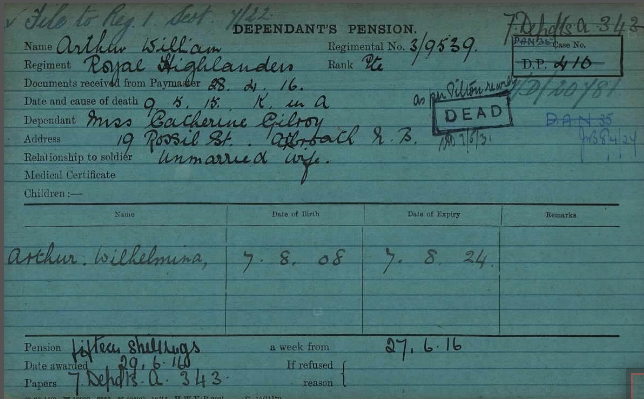 ✓ File to Reg. 1. Sect. 7/22
DEPENDANT'S PENSION.
7 Depots A 343
Name Arthur William Regimental No. 3/9539.
Case No.
D.P. 410
Regiment Royal Highlanders Rank Pte
Documents received from Paymaster 28. 4. 16.
Date and cause of death 9. 5. 15. K. in A
as per
DEAD
Dependant Miss Catherine Gilroy
Address 19 Rossil St. Arbroath N. B.
Relationship to soldier Unmarried Wife.
Medical Certificate
Children:—
Name Date of Birth Date of Expiry Remarks
Arthur. Wilhelmina, 7. 8. 08 7. 8. 24.
Pension fifteen shillings a week from 27. 6. 16
Date awarded 29. 6. 16 If refused
Papers 7 Depots. A. 343. reason {